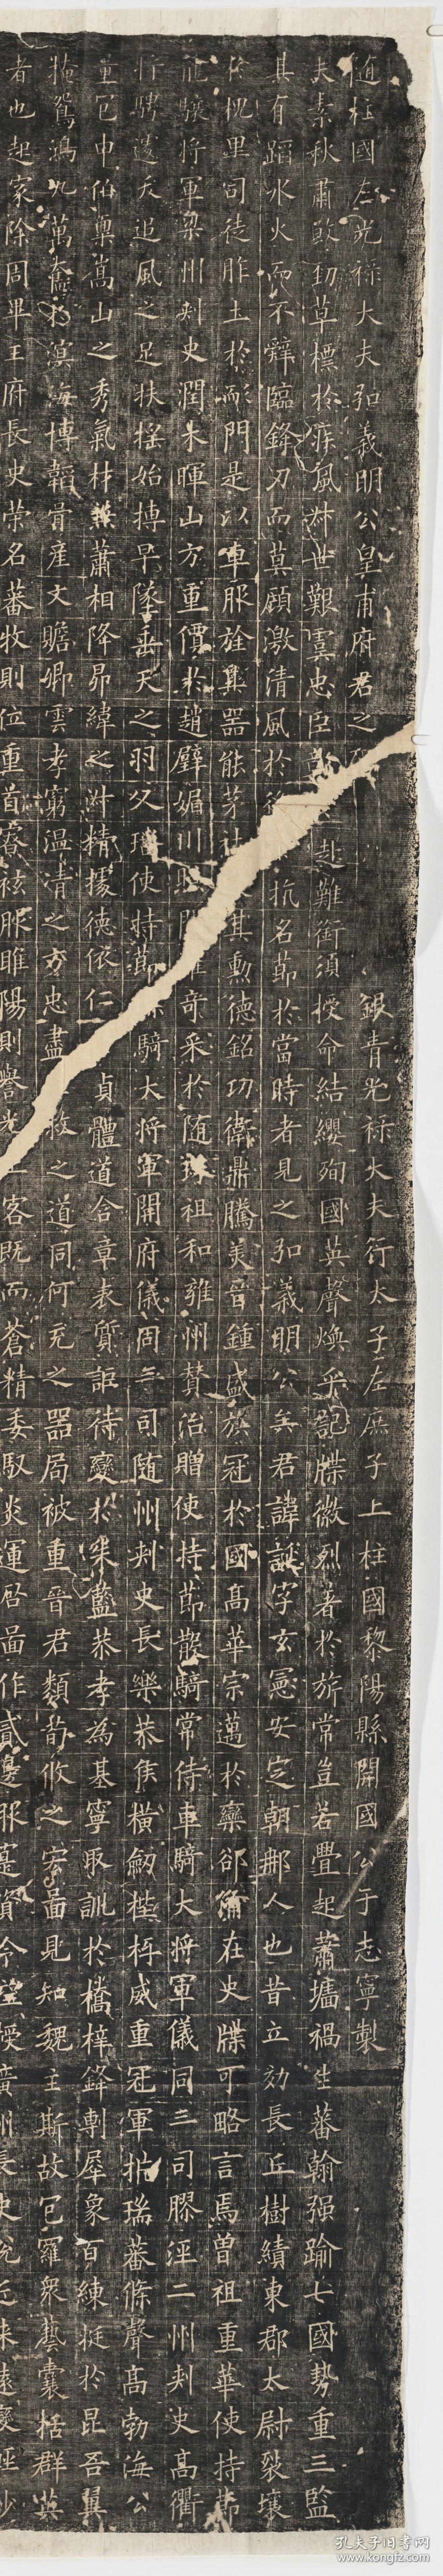 隨柱國左光祿大夫弘義明公皇甫府君之碑 銀青光祿大夫行太子左庶子上柱國黎陽縣開國公于志寧製
夫素秋肅煞勁草標於疾風叔世艱虞忠臣 赴難銜須授命結纓殉國英聲煥乎記牒徽烈著於旂常豈若舋起蕭墻禍生蕃翰强踰七國勢重三監
其有蹈水火而不辭臨鋒刃而莫顧激清風於後 抗名節於當時者見之弘義明公矣君諱誕字玄憲安定朝那人也昔立効長丘樹績東郡太尉裂壤
於槐里司徒胙土於耏門是以車服旌其器能茅社 其勳德銘功衛鼎騰美晉鍾盛族冠於國高華宗邁於欒郤備在史牒可略言焉曾祖重華使持節
龍驤將軍梁州刺史潤木暉山方重價於趙璧媚川 曜奇采於隨珠祖和雍州贊治贈使持節散騎常侍車騎大將軍儀同三司膠涇二州刺史高衢
將騁逸夭追風之足扶搖始摶早墜垂天之羽父璠使持節 騎大將軍開府儀同三司隨州刺史長樂恭侯橫劍桂枰威重冠軍析瑞蕃條聲高勃海公
量包申伯稟嵩山之秀氣材兼蕭相降昴緯之淑精據德依仁 貞體道含章表質詎待變於朱藍恭孝為基寧取訓於橋梓鋒剸犀象百練挺於昆吾翼
掩鴛鴻九萬奮於溟海博韜骨產文贍卿雲孝窮溫凊之方忠盡 救之道同何充之器局被重晉君類荀攸之宏啚見知魏主斯故包羅衆藝囊括群英
者也起家除周畢王府長史榮名蕃牧則位重首寮袨服睢陽則譽光上客既而蒼精委馭炎運启啚作貳邊服寔資令望授廣州長史悅近來遠變輕訬
孔夫子旧书网
www.kongfz.com